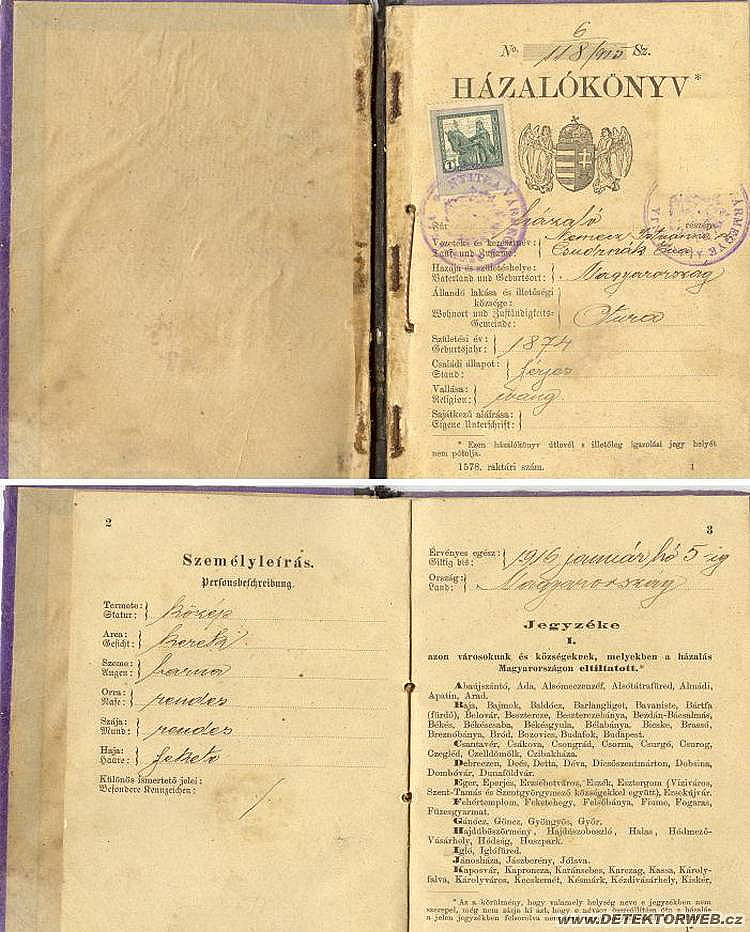 6
No. 118/915 Sz.
HÁZALÓKÖNYV*
1
házaló részére
Vezeték- és keresztnév: Nemecz Istvánné
Tauf- und Zuname: Csudrnák Éva
Hazája és születéshelye: Magyarország
Vaterland und Geburtsort:
Állandó lakása és illetőségi
községe:
Wohnort und Zuständigkeits-
Gemeinde: Tura
Születési év: 1874
Geburtsjahr:
Családi állapot: férjes
Stand:
Vallása: evang
Religion:
Sajátkezű aláírása:
Eigene Unterschrift:
* Ezen házalókönyv útlevél s illetőleg igazolási jegy helyét
nem pótolja.
1578. raktári szám. 1
2
Személyleírás.
Personsbeschreibung.
Termete: közép
Statur:
Arca: kerek
Gesicht:
Szeme: barna
Augen:
Orra: rendes
Nase:
Szája: rendes
Mund:
Haja: fekete
Haare:
Különös ismertető jelei: /
Besondere Kennzeichen:
3
Érvényes egész: 1916 január hó 5-ig
Giltig bis:
Ország: Magyarország
Land:
Jegyzéke
I.
azon városoknak és községeknek, melyekben a házalás
Magyarországon eltiltatott.*
Abaújszántó, Ada, Alsómeczenzéf, Alsótátrafüred, Almádi,
Apatin, Arad.
Baja, Bajmok, Baldócz, Barlangliget, Bavaniste, Bártfa
(fürdő), Belovár, Besztercze, Beszterczebánya, Bezdán-Bácsalmás,
Békés, Békéscsaba, Békésgyula, Bélabánya, Bicske, Brassó,
Breznóbánya, Bród, Bozovics, Budafok, Budapest.
Csantavér, Csákova, Csongrád, Csorna, Csurgó, Csurog,
Czegléd, Czelldömölk, Czibakháza.
Debreczen, Deés, Detta, Déva, Dicsőszentmárton, Dobsina,
Dombóvár, Dunaföldvár.
Eger, Eperjes, Erzsébetváros, Eszék, Esztergom (Víziváros,
Szent-Tamás és Szentgyörgymező községekkel együtt), Érsekújvár.
Fehértemplom, Feketehegy, Felsőbánya, Fiume, Fogaras,
Füzesgyarmat.
Gánócz, Göncz, Gyöngyös, Győr.
Hajdúböszörmény, Hajdúszoboszló, Halas, Hódmező-
Vásárhely, Hódság, Huszpark.
Igló, Iglófüred.
Jánosháza, Jászberény, Jólsva.
Kaposvár, Kaproncza, Karánsebes, Karczag, Kassa, Károly-
falva, Károlyváros, Kecskemét, Késmárk, Kézdivásárhely, Kiskér,
*Az a körülmény, hogy valamely helység neve e jegyzékben nem
szerepel, még nem zárja ki azt, hogy a névsor összeállítása óta a házalás
a jelen jegyzékben felsorolva nem
1*
www.DETEKTORWEB.cz